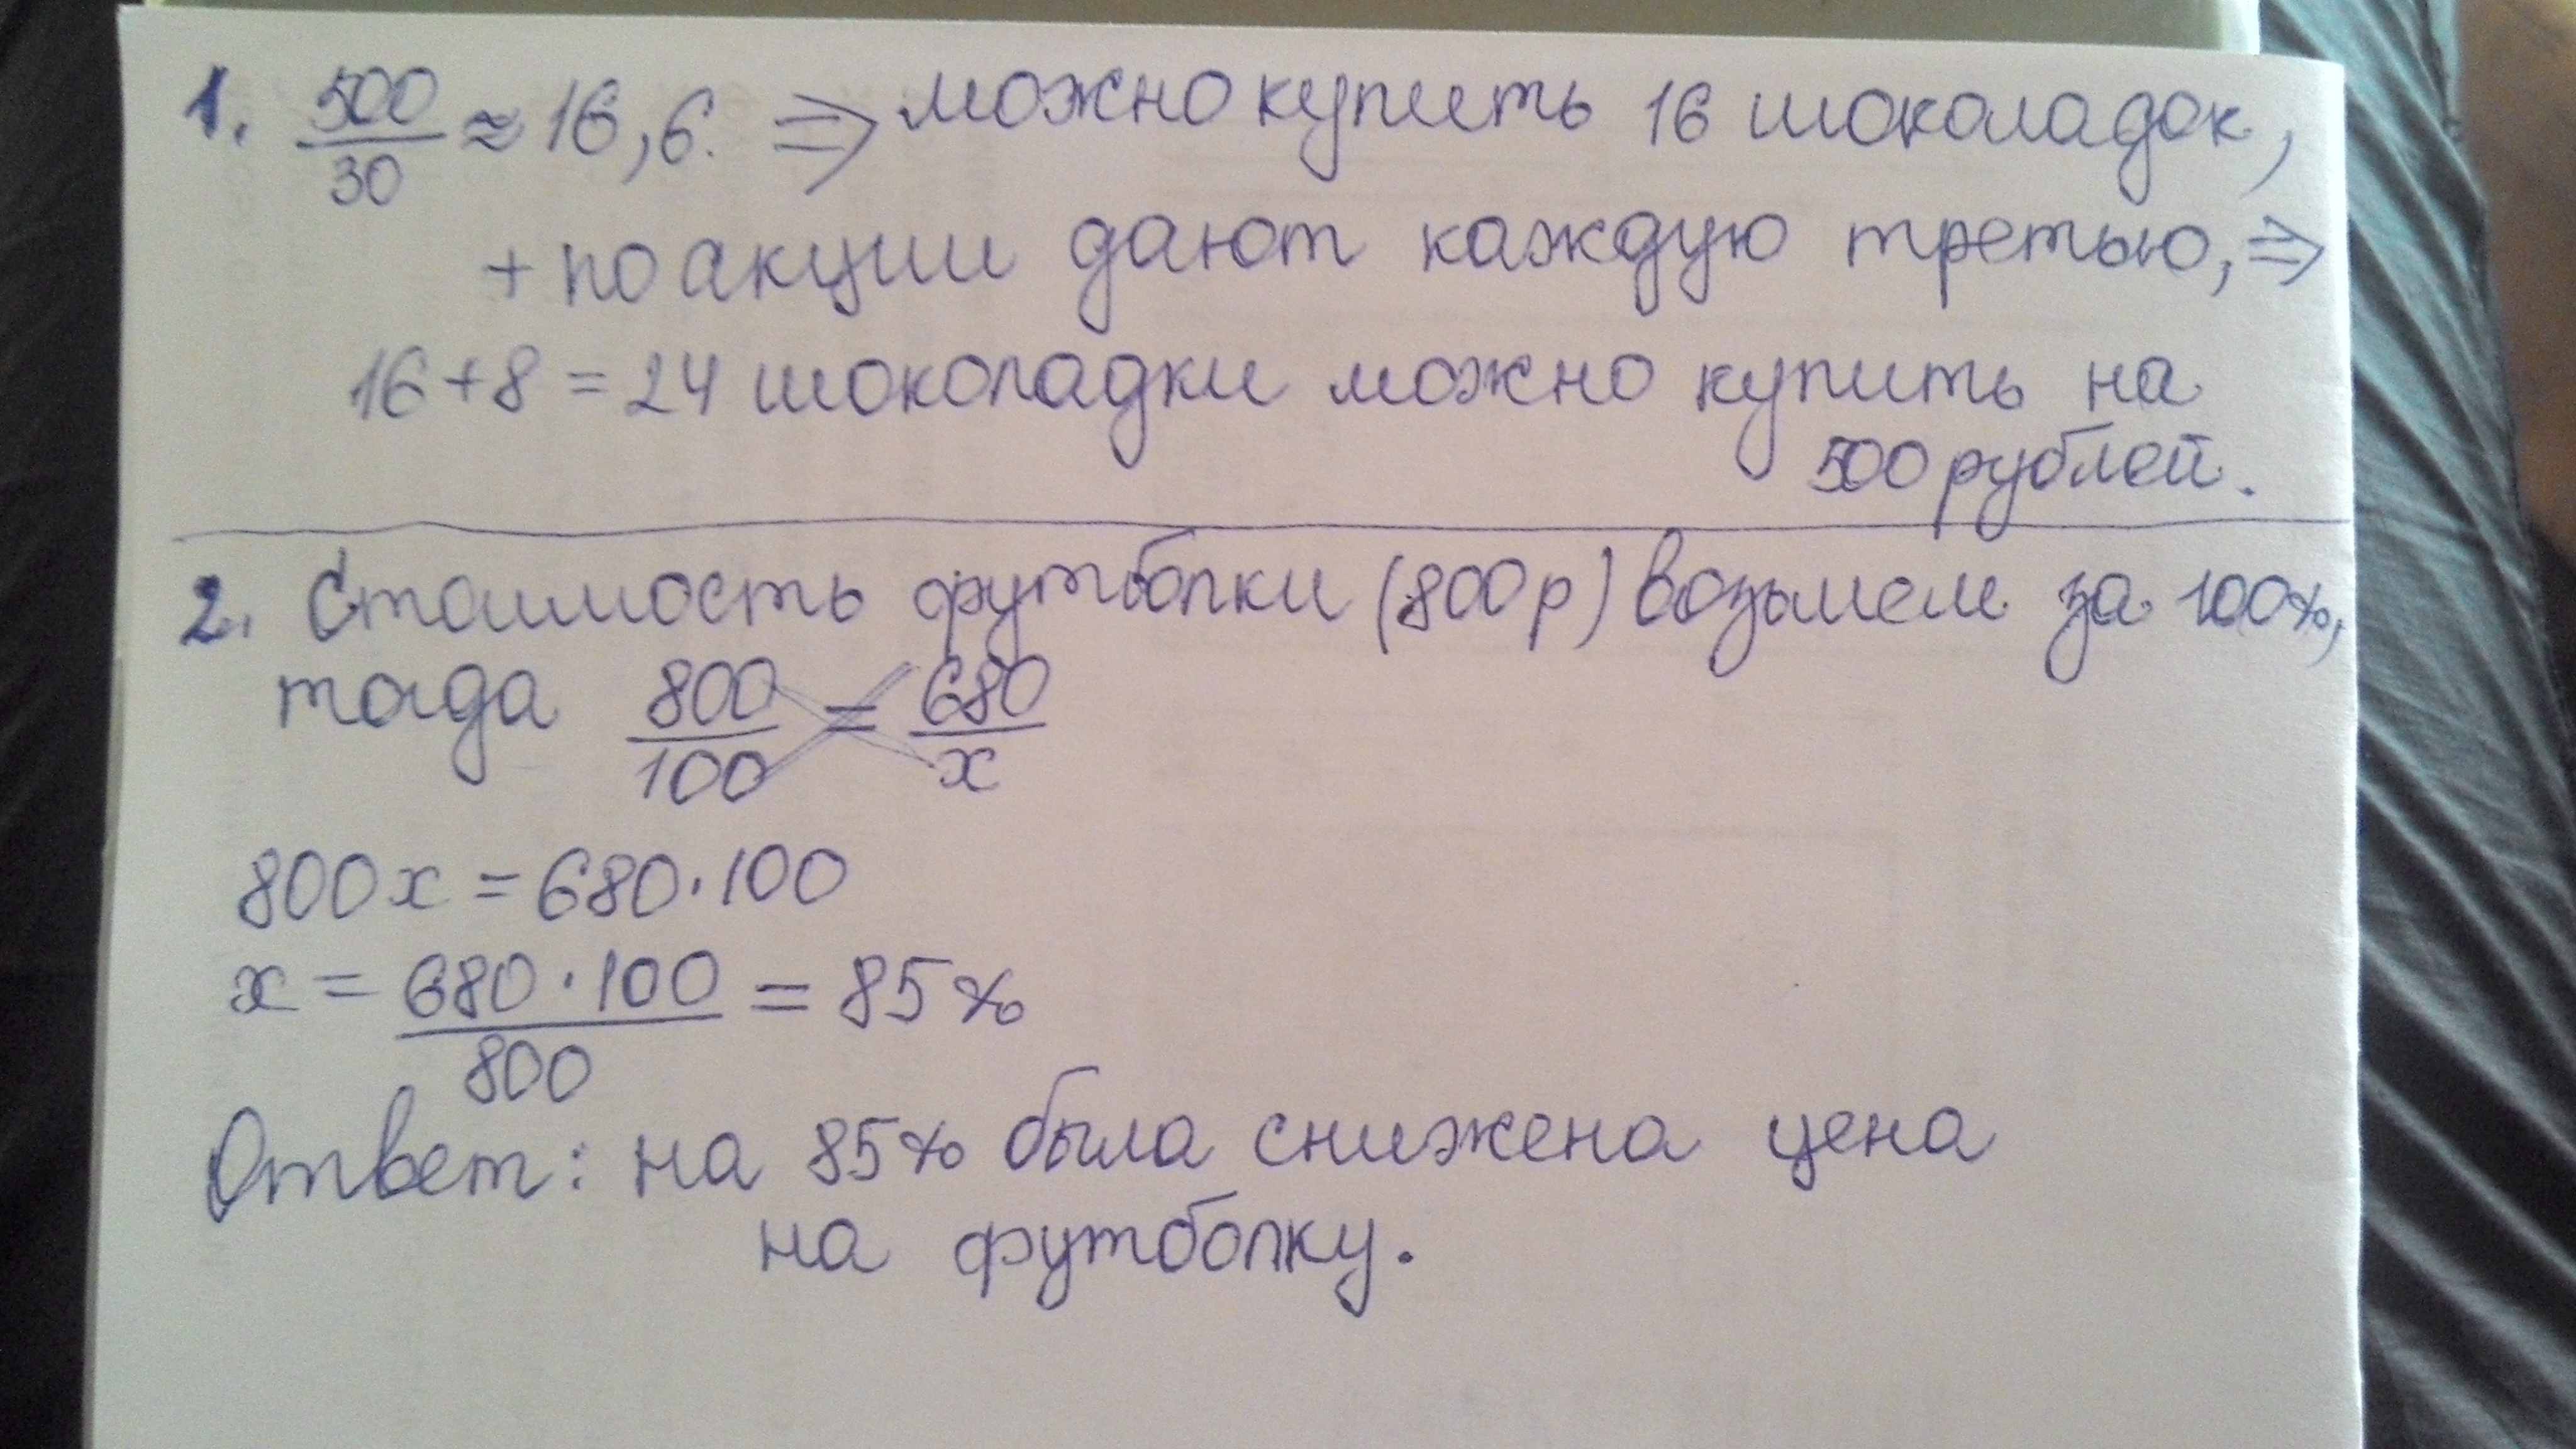 1. 500/30 ≈ 16,6. ⇒ можно купить 16 шоколадок,
+ по акции дают каждую третью, ⇒
16+8 = 24 шоколадки можно купить на
500 рублей.
2. Стоимость футболки (800р) возьмем за 100%,
тогда 800/100 = 680/x
800x = 680·100
x = 680·100/800 = 85%
Ответ: на 85% была снижена цена
на футболку.